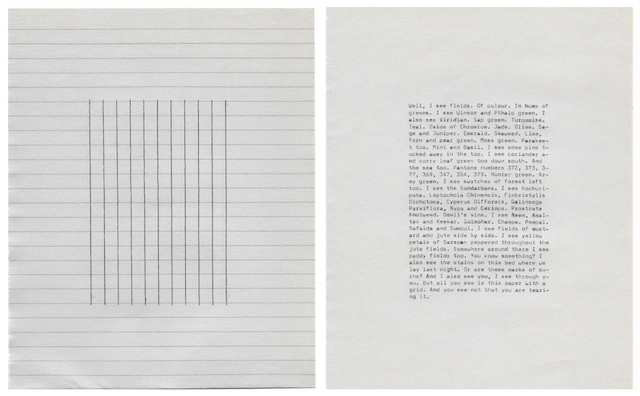 Well, I see fields. Of colour. In hues of
greens. I see Winsor and Pthalo green. I
also see Viridian. Sap green. Turquoise.
Teal. Oxide of Chromium. Jade. Olive. Sa-
ge and Juniper. Emerald. Seaweed. Lime,
fern and pear green. Moss green. Parakee-
t too. Mint and Basil. I see some pine t-
ucked away in the top. I see coriander a-
nd curry leaf green too down south. And
the sea too. Pantone numbers 372, 373, 5-
77, 369, 347, 354, 379. Hunter green. Ar-
my green. I see swatches of forest left
too. I see the Sundarbans. I see Kochuri-
pana. Leptochola Chinensis, Fimbristylis
Dichotoma, Cyperus Difformis, Galinsoga
Parviflora, Nypa and Ceriops. Prostrate
Knotweed. Devil's vine. I see Neem, Amal-
tas and Keekar. Gulmohar. Champa. Peepal.
Safaida and Sumbul. I see fields of must-
ard and jute side by side. I see yellow
petals of Sarsoon peppered throughout the
jute fields. Somewhere around there I see
paddy fields too. You know something? I
also see the stains on this bed where we
lay last night. Or are these marks of bu-
rns? And I also see you, I see through y-
ou. But all you see is this paper with a
grid. And you see not that you are teari-
ng it.